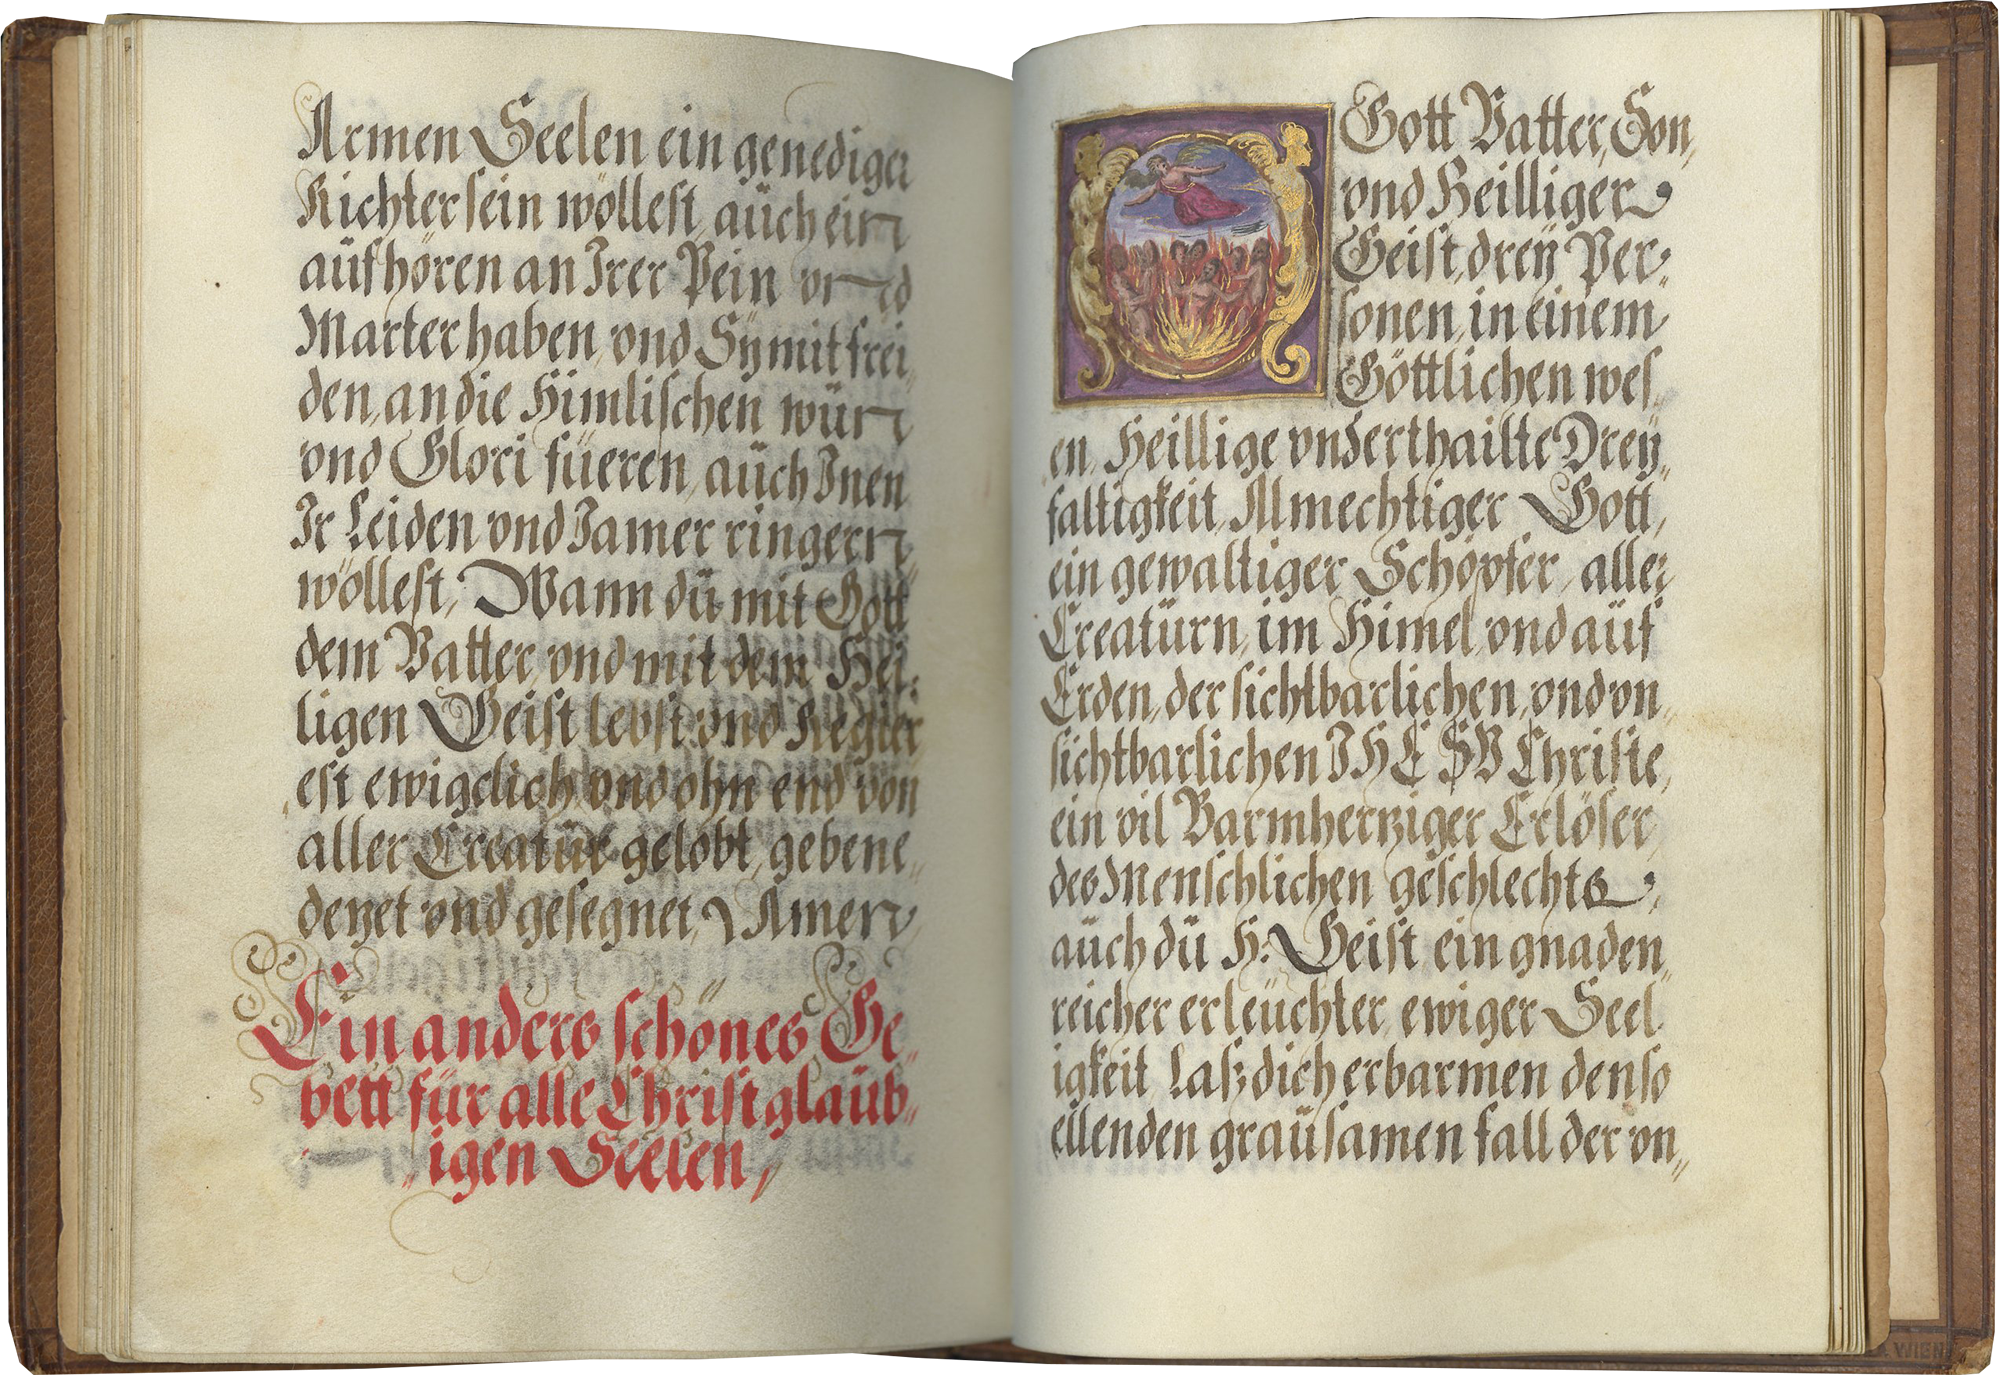 Armen Seelen ein genediger
Richter sein wöllest, aüch ein
aüfhören an Irer Pein vnd
Marter haben, vnd Sÿ mit frei„
den, an die Himlischen würn
vnd Glori füeren, aüch Inen
Ir Leiden vnd Iamer ringern,
wöllest, Wann dü mit Gott
dem Vatter, vnd mit dem Hei„
ligen Geist lebst vnd Regier„
est ewigclich vnd ohn end von
aller Creatür gelobt, gebene„
deyet vnd gesegnet, Amen,
Ein anders schönes Ge„
bett für alle Christglaüb„
„igen Seelen,
O
Gott Vatter, Son,
vnd Heilliger
Geist, dreÿ Per„
sonen, in einem
Göttlichen wes„
en, Heillige vnderthailte Dreÿ„
faltigkeit, Almechtiger Gott,
ein gewaltiger Schöpfer, aller
Creatürn, im Himel, vnd aüf
Erden, der sichtbarlichen, vnd vn„
sichtbarlichen IHESV Christe,
ein vil Barmhertziger Erlöser,
des Menschlichen geschlechts,
aüch dü H: Geist ein gnaden„
reicher erleüchter, ewiger Seel„
igkeit, Laß dich erbarmen den so
ellenden graüsamen fall der vn„
WIEN